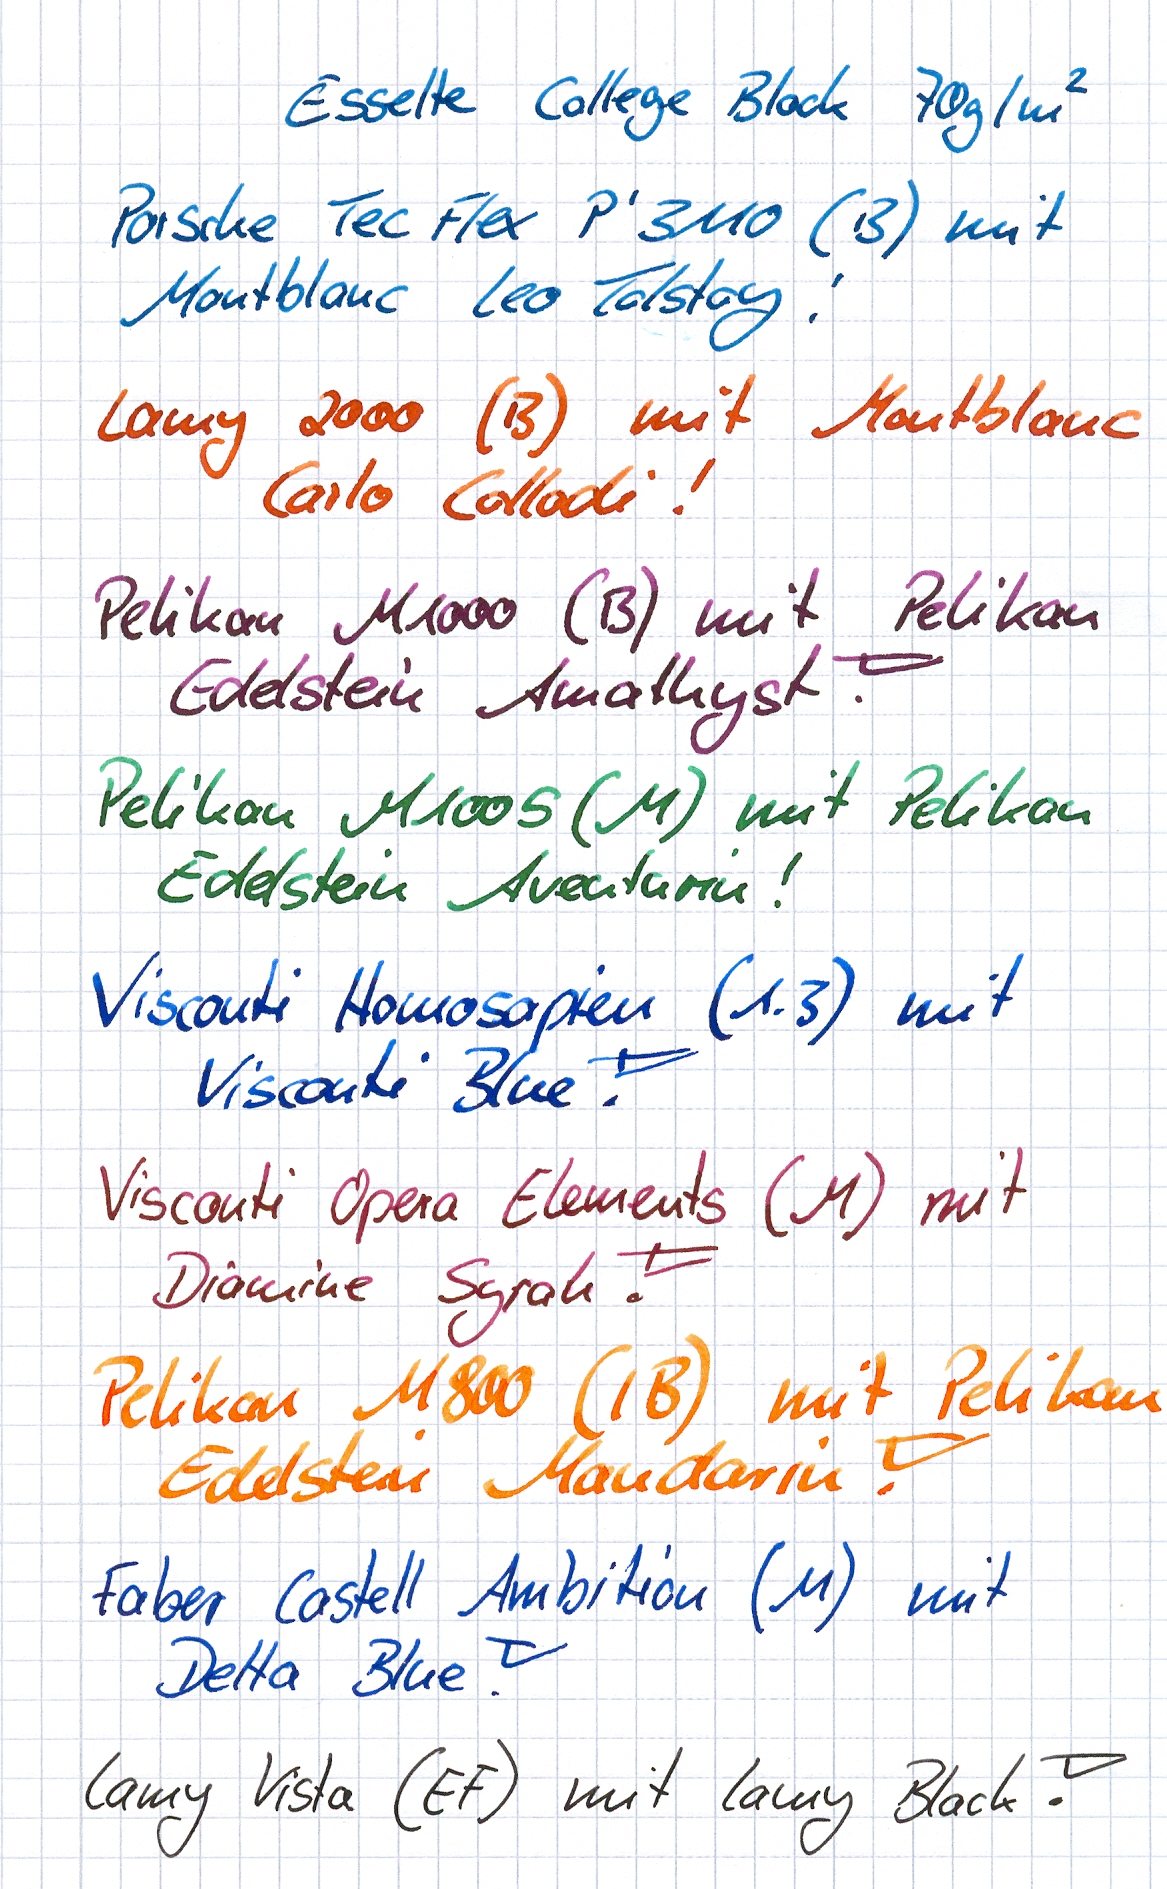 Esselte College Block 70g/m²
Porsche Tec Flex P'3110 (B) mit
Montblanc Leo Tolstoy!
Lamy 2000 (B) mit Montblanc
Carlo Collodi!
Pelikan M1000 (B) mit Pelikan
Edelstein Amathyst!
Pelikan M1005 (M) mit Pelikan
Edelstein Aventurin!
Visconti Homosapien (1.3) mit
Visconti Blue!
Visconti Opera Elements (M) mit
Diamine Syrah!
Pelikan M800 (IB) mit Pelikan
Edelstein Mandarin!
Faber Castell Ambition (M) mit
Delta Blue!
Lamy Vista (EF) mit Lamy Black!